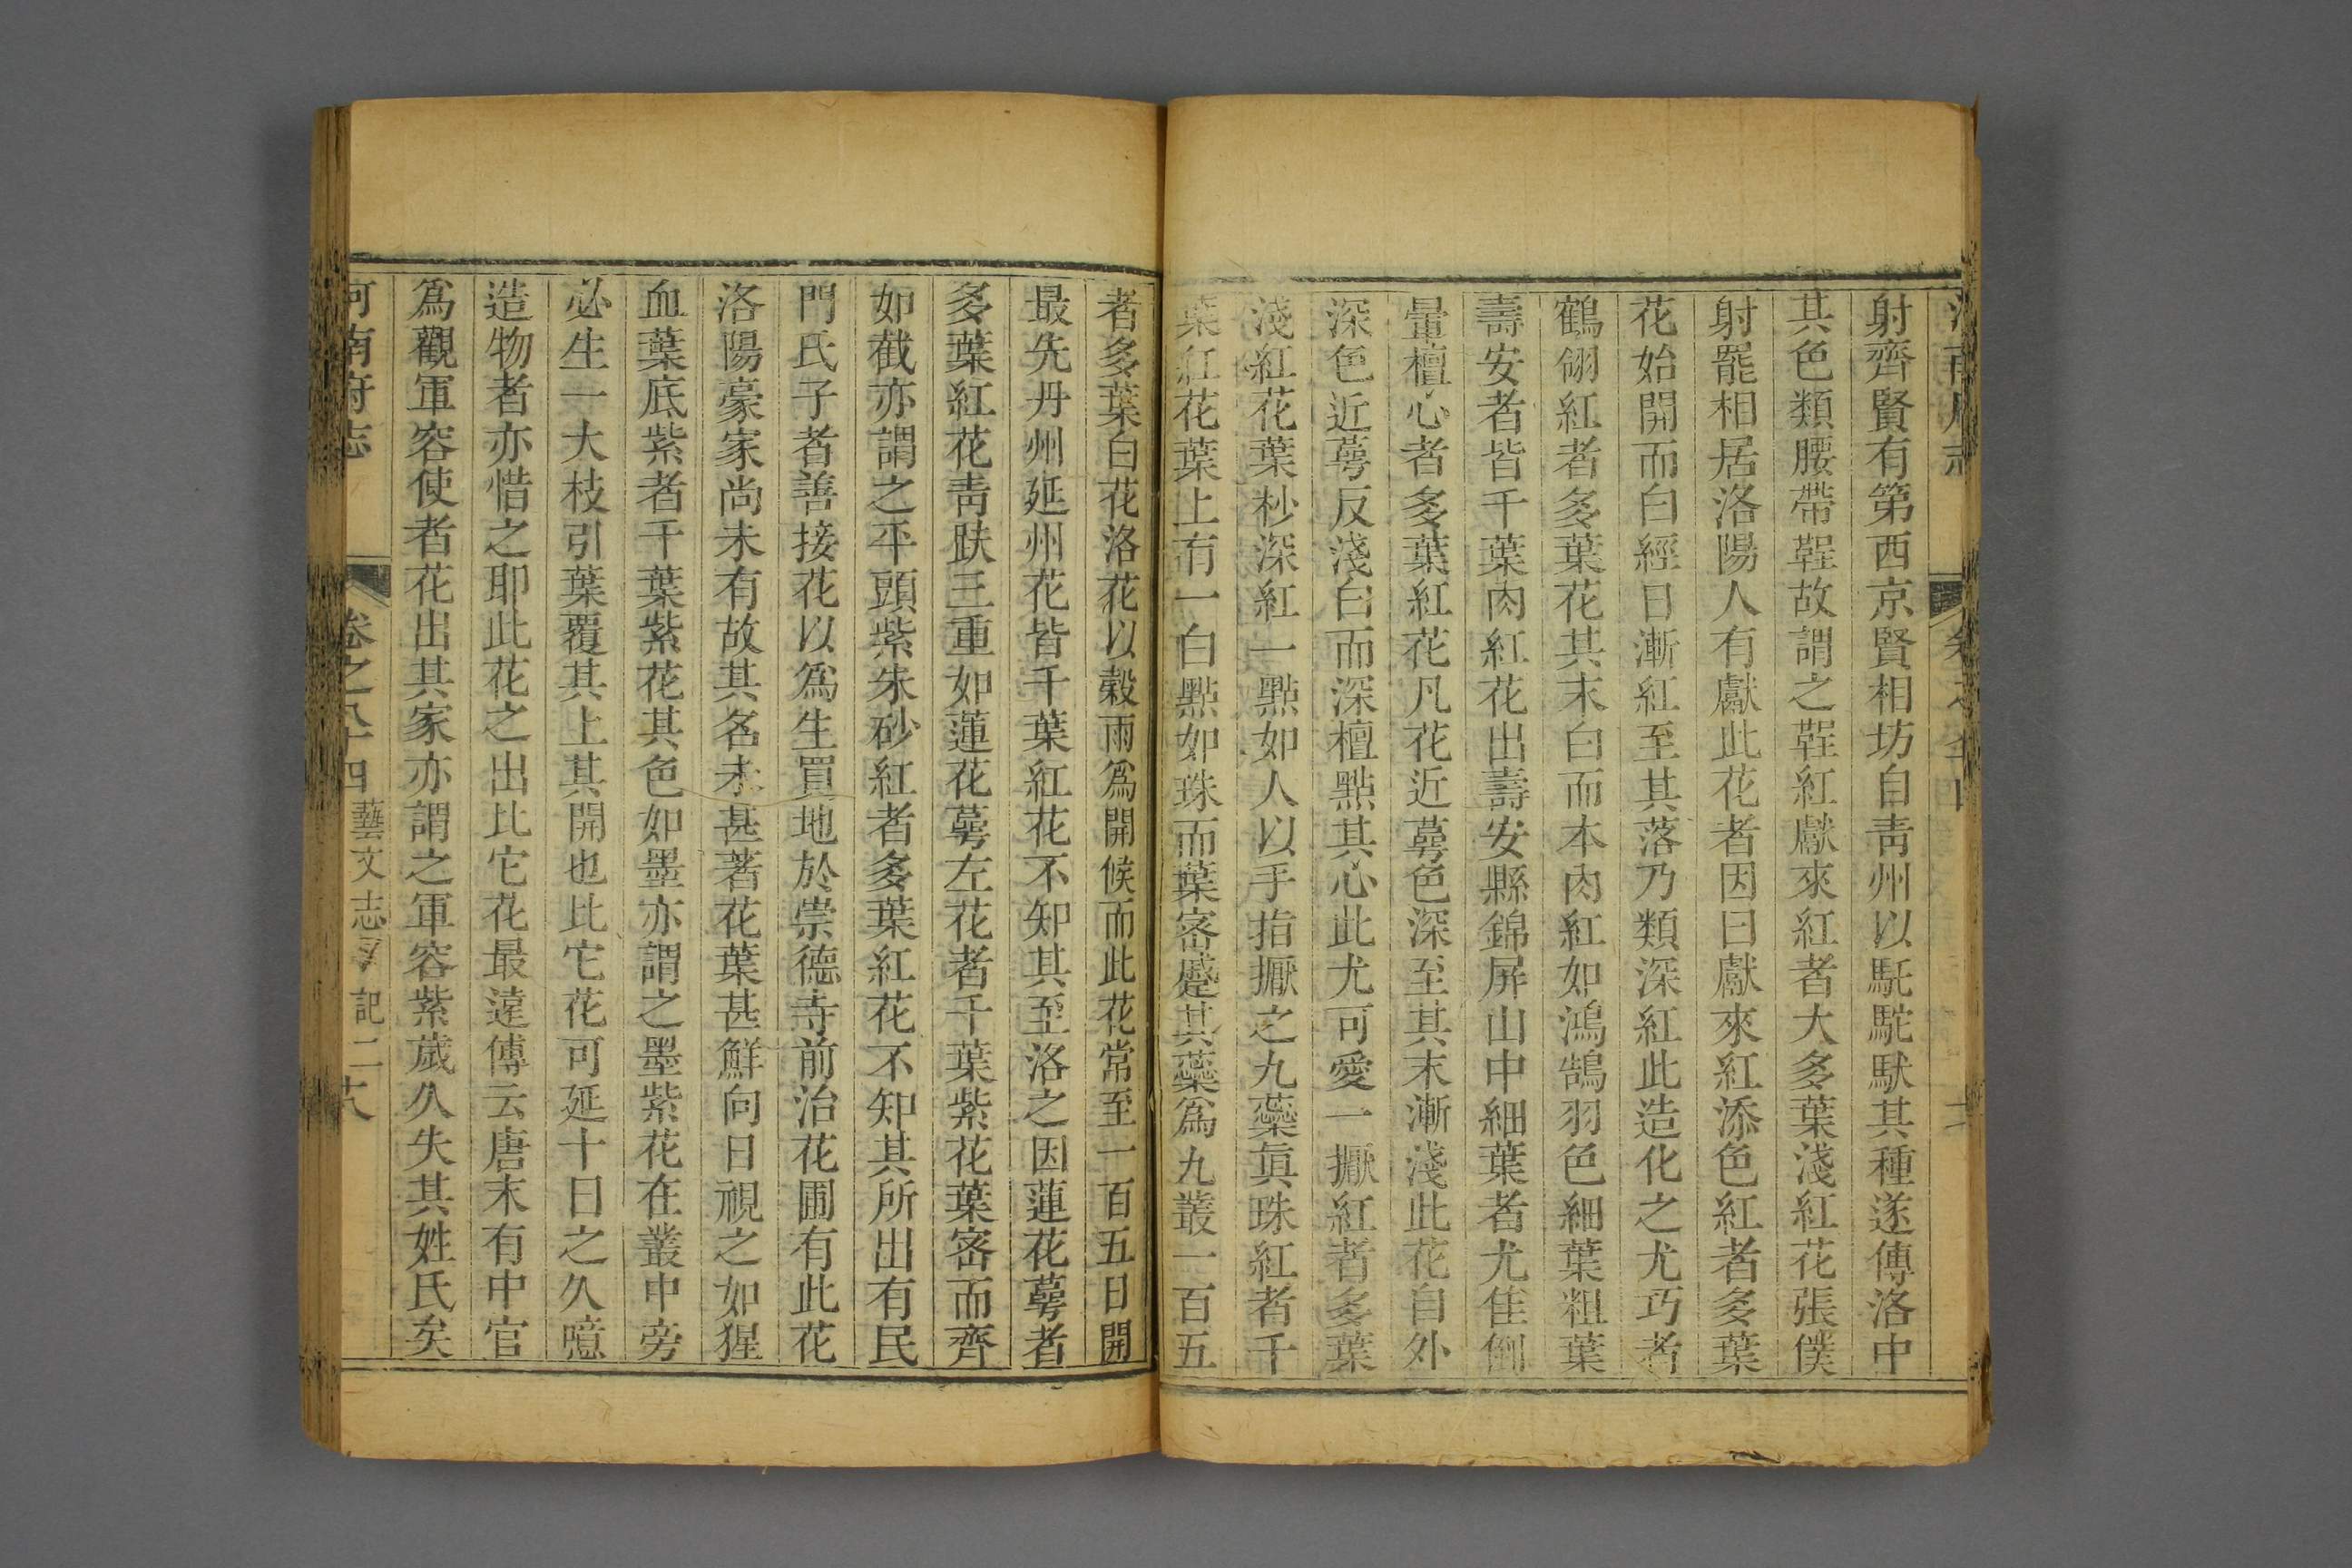 射齊賢有第西京賢相坊自青州以馲駝馱其種遂傳洛中
其色類腰帶鞓故謂之鞓紅獻來紅者大多葉淺紅花張僕
射罷相居洛陽人有獻此花者因曰獻來紅添色紅者多葉
花始開而白經日漸紅至其落乃類深紅此造化之尤巧者
鶴翎紅者多葉花其末白而本肉紅如鴻鵠羽色細葉粗葉
壽安者皆千葉肉紅花出壽安縣錦屏山中細葉者尤佳倒
暈檀心者多葉紅花凡花近萼色深至其末漸淺此花自外
深色近萼反淺白而深檀點其心此尤可愛一擫紅者多葉
淺紅花葉杪深紅一點如人以手指擫之九蘂真珠紅者千
葉紅花葉上有一白點如珠而葉密蹙其蘂爲九叢一百五
者多葉白花洛花以穀雨爲開候而此花常至一百五日開
最先丹州延州花皆千葉紅花不知其至洛之因蓮花萼者
多葉紅花青趺三重如蓮花萼左花者千葉紫花葉密而齊
如截亦謂之平頭紫朱砂紅者多葉紅花不知其所出有民
門氏子者善接花以爲生買地於崇德寺前治花圃有此花
洛陽豪家尚未有故其名未甚著花葉甚鮮向日視之如猩
血葉底紫者千葉紫花其色如墨亦謂之墨紫花在叢中旁
必生一大枝引葉覆其上其開也比它花可延十日之久噫
造物者亦惜之耶此花之出比它花最遠傳云唐末有中官
爲觀軍容使者花出其家亦謂之軍容紫歲久失其姓氏矣
河南府志 卷之八十四 藝文志 記二 十八